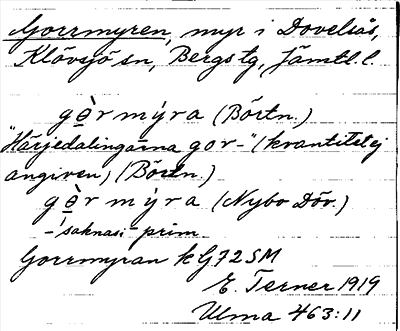 Gorrmyren, myr i Dovelsås,
Klövsjö sn, Bergs tg, Jämtl. l.
gò̱r mýra (Börtn.)
"Härjedalingarna gor-" (kvantitet ej
angiven) (Börtn.)
gò̱r mýra (Nybo Döv.)
- saknas i prim.
Gorrmyran k G72 SM
E. Terner 1919
Ulma 463:11